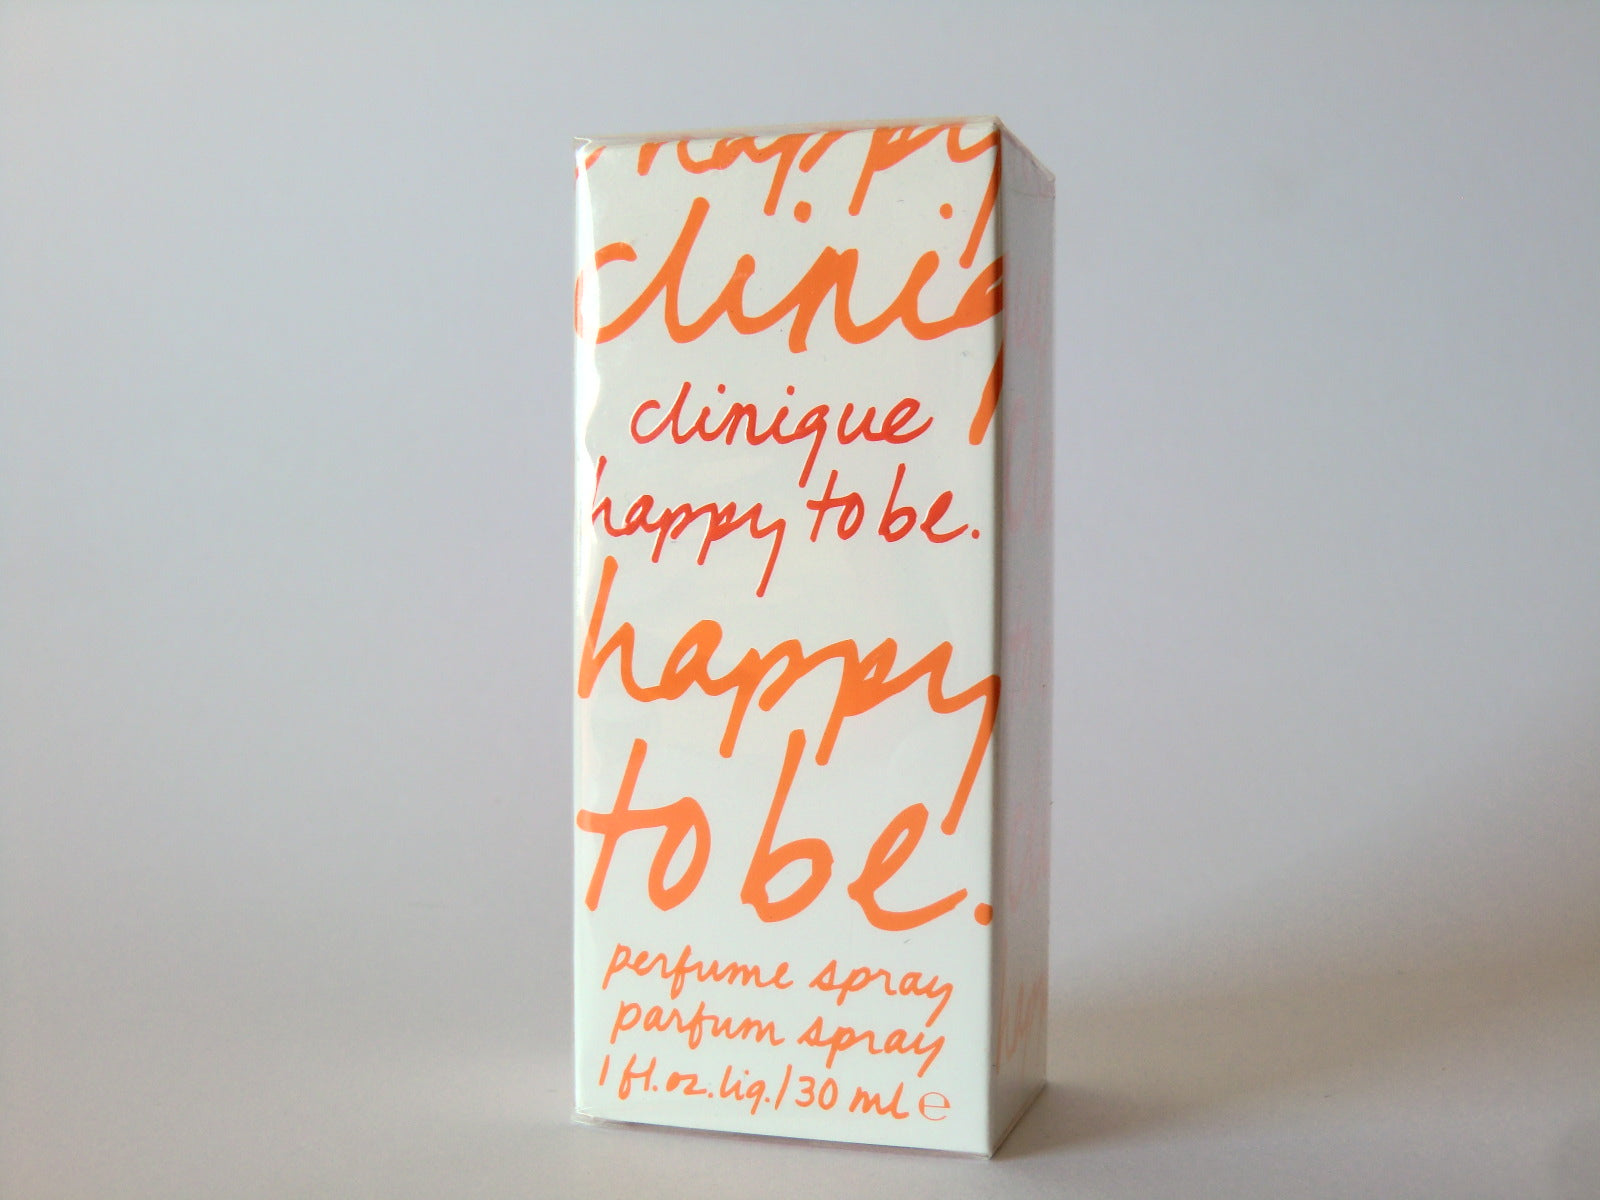 happy
cliniq
clinique
happy to be.
happy
to be.
perfume spray
parfum spray
1 fl.oz.liq./30 ml e